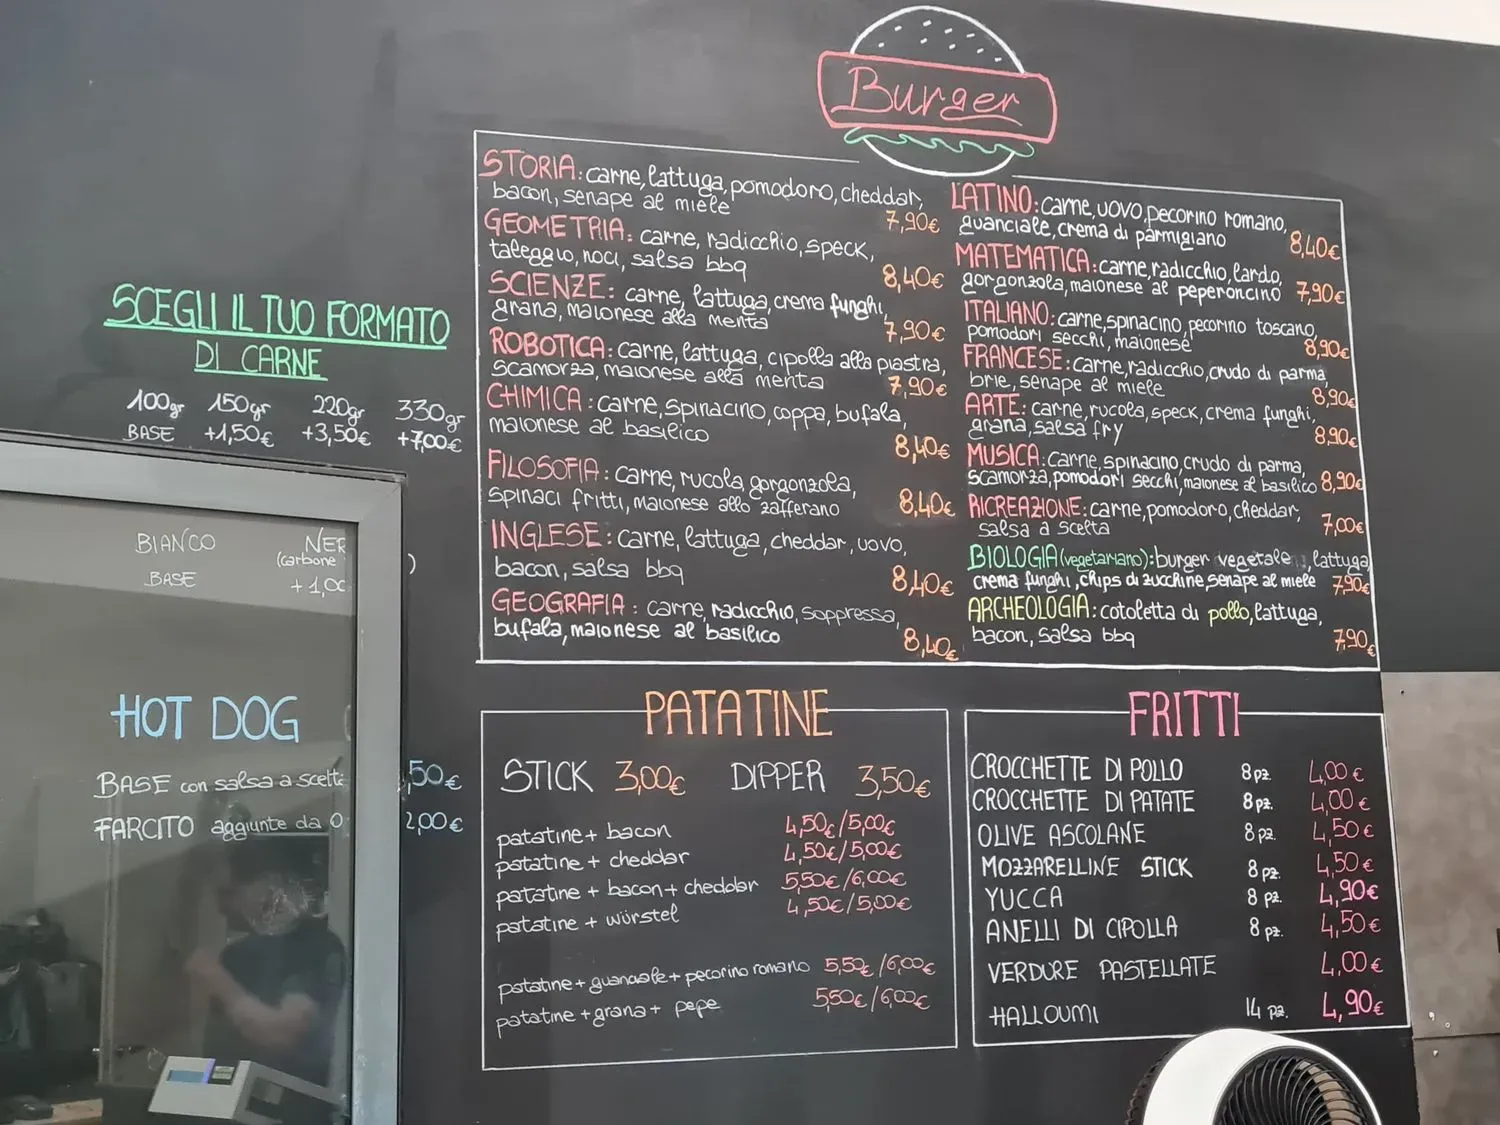 Burger
SCEGLI IL TUO FORMATO
DI CARNE
100gr 150gr 220gr 330gr
BASE +1,50€ +3,50€ +7,00€
BIANCO NER
(carbone )
BASE + 1,0
HOT DOG
BASE con salsa a scelta ,50€
FARCITO aggiunte da 0 2,00€
STORIA: carne, lattuga, pomodoro, cheddar,
bacon, senape al miele 7,90€
GEOMETRIA: carne, radicchio, speck,
taleggio, noci, salsa bbq 8,40€
SCIENZE: carne, lattuga, crema funghi,
grana, maionese alla menta 7,90€
ROBOTICA: carne, lattuga, cipolla alla piastra,
scamorza, maionese alla menta 7,90€
CHIMICA: carne, spinacino, coppa, bufala,
maionese al basilico 8,40€
FILOSOFIA: carne, rucola, gorgonzola,
spinaci fritti, maionese allo zafferano 8,40€
INGLESE: carne, lattuga, cheddar, uovo,
bacon, salsa bbq 8,40€
GEOGRAFIA: carne, radicchio, soppressa,
bufala, maionese al basilico 8,40€
LATINO: carne, uovo, pecorino romano,
guanciale, crema di parmigiano 8,40€
MATEMATICA: carne, radicchio, lardo,
gorgonzola, maionese al peperoncino 7,90€
ITALIANO: carne, spinacino, pecorino toscano,
pomodori secchi, maionese 8,90€
FRANCESE: carne, radicchio, crudo di parma,
brie, senape al miele 8,90€
ARTE: carne, rucola, speck, crema funghi,
grana, salsa fry 8,90€
MUSICA: carne, spinacino, crudo di parma,
scamorza, pomodori secchi, maionese al basilico 8,90€
RICREAZIONE: carne, pomodoro, cheddar,
salsa a scelta 7,00€
BIOLOGIA (vegetariano): burger vegetale, lattuga,
crema funghi, chips di zucchine, senape al miele 7,90€
ARCHEOLOGIA: cotoletta di pollo, lattuga,
bacon, salsa bbq 7,90€
PATATINE
STICK 3,00€ DIPPER 3,50€
patatine + bacon 4,50€/5,00€
patatine + cheddar 4,50€/5,00€
patatine + bacon + cheddar 5,50€/6,00€
patatine + würstel 4,50€/5,00€
patatine + guanciale + pecorino romano 5,50€/6,00€
patatine + grana + pepe 5,50€/6,00€
FRITTI
CROCCHETTE DI POLLO 8 pz. 4,00€
CROCCHETTE DI PATATE 8 pz. 4,00€
OLIVE ASCOLANE 8 pz. 4,50€
MOZZARELLINE STICK 8 pz. 4,50€
YUCCA 8 pz. 4,90€
ANELLI DI CIPOLLA 8 pz. 4,50€
VERDURE PASTELLATE 4,00€
HALLOUMI 14 pz. 4,90€